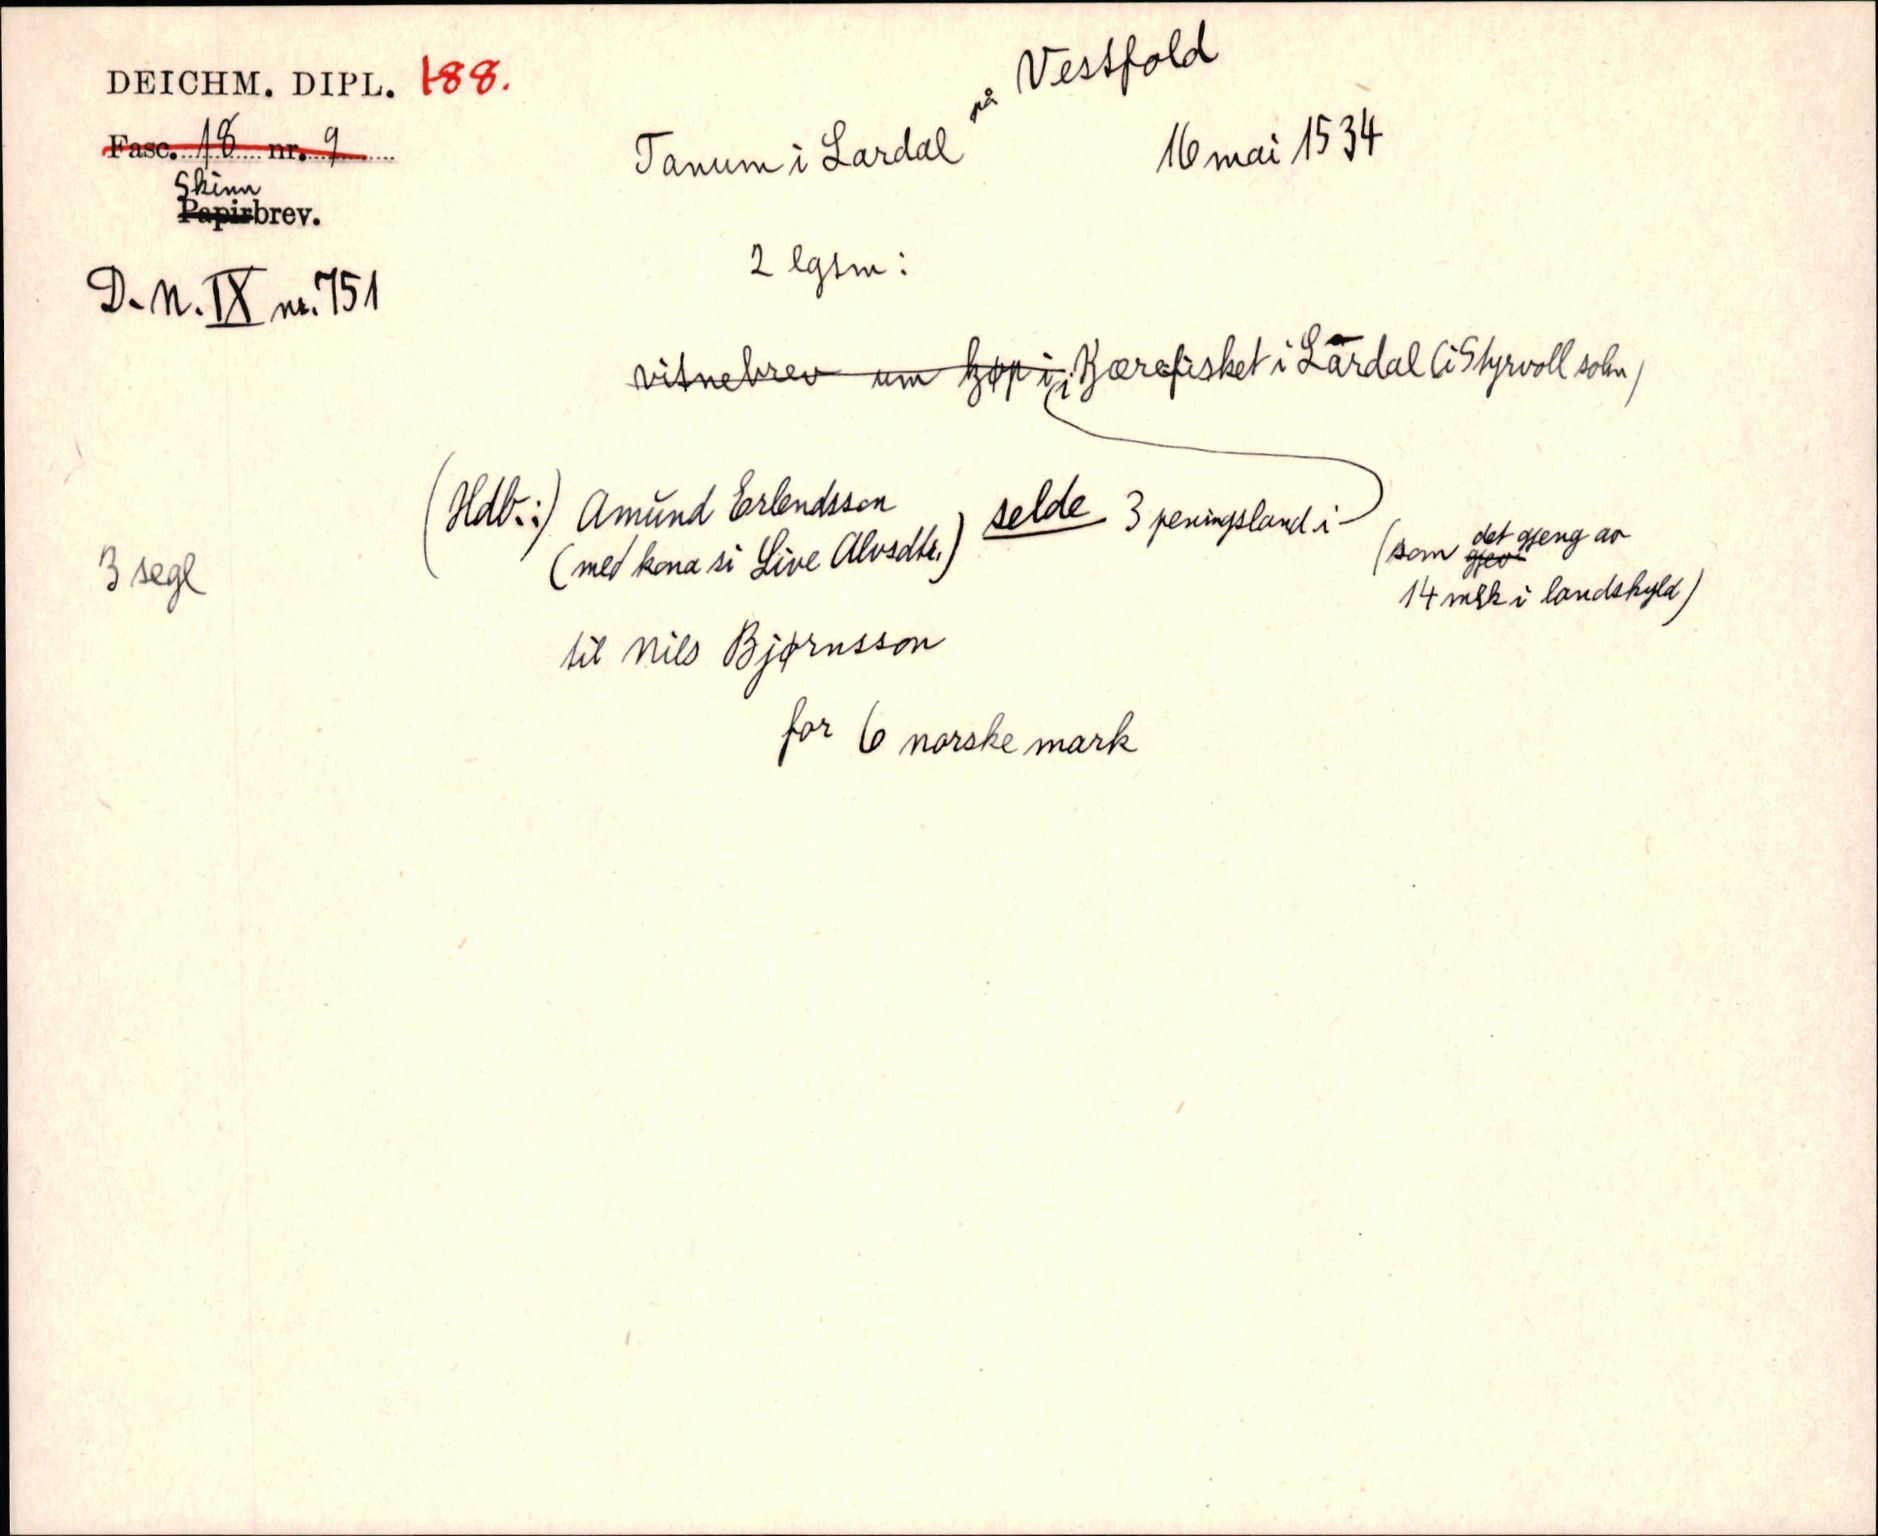 DEICHM. DIPL. 188.
Fasc. 18 nr. 9
Skinn
Papirbrev.
D.N. IX nr. 751
Tanum i Lardal på Vestfold
16 mai 1534
2 lgsm:
vitnebrev um kjøp i i Kjærefisket i Lardal (i Styrvoll sokn)
(Hdb.:) Amund Erlendsson selde 3 peningsland i
(med kona si Live Alvsdtr.)
(som gjev det gjeng av
14 mrk i landskyld)
3 segl
til Nils Bjørnsson
for 6 norske mark